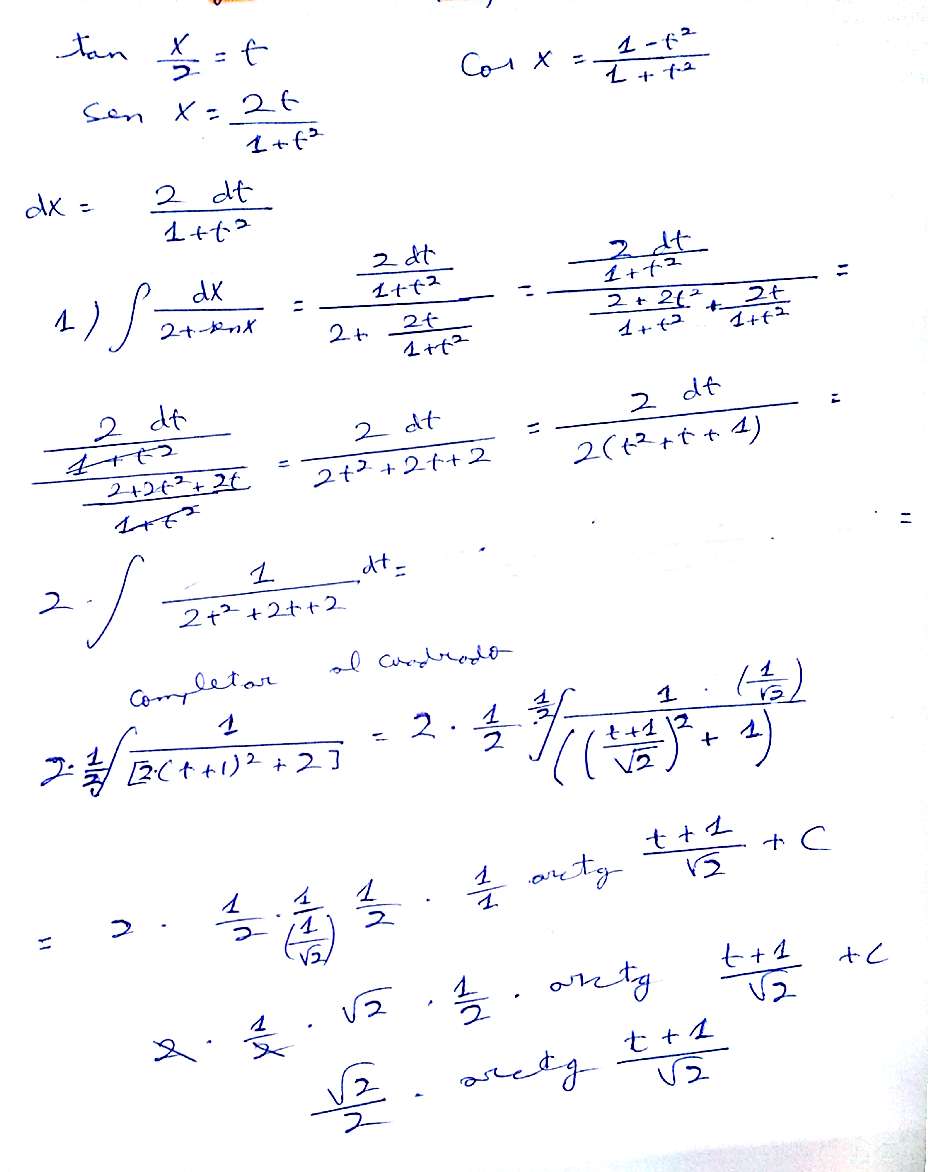 tan x/2 = t    Cos x = (1-t²)/(1+t²)
sen x = 2t/(1+t²)
dx = 2 dt/(1+t²)
1) ∫ dx/(2+senx) = (2 dt/(1+t²))/(2+ 2t/(1+t²)) = (2 dt/(1+t²))/((2+2t²)/(1+t²) + 2t/(1+t²)) =
(2 dt/(1+t²))/((2+2t²+2t)/(1+t²)) = 2 dt/(2t²+2t+2) = 2 dt/(2(t²+t+1)) =
=
2·∫ 1/(2t²+2t+2) dt =
completar al cuadrado
2·1/2 ∫ 1/[2·(t+1)²+2] = 2·1/2 · 1/2 ∫ (1·(1/√2))/(((t+1)/√2)²+1)
= 2 · 1/2 · 1/(1/√2) · 1/2 · 1/1 arctg (t+1)/√2 + C
2 · 1/2 · √2 · 1/2 · arctg (t+1)/√2 + C
√2/2 · arctg (t+1)/√2